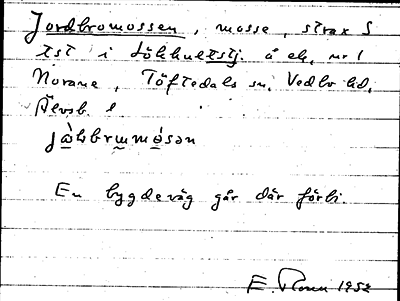 Jordbromossen, mosse, strax S
tst i Lökhultstj. å ek. nr 1
Norane, Töftedals sn, Vedbo hd,
Älvsb. l
En bygdeväg går där förbi.
E. 1952